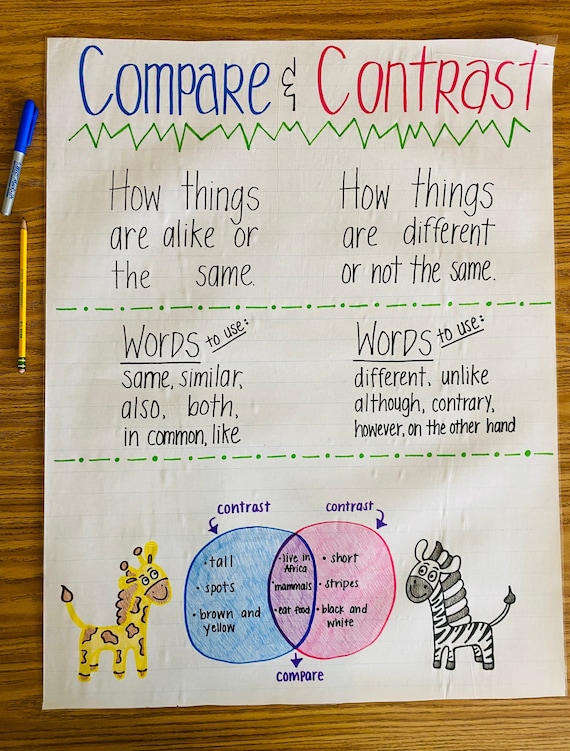 Compare & Contrast
How things
are alike or
the same.
How things
are different
or not the same.
Words to use:
same, similar,
also, both,
in common, like
Words to use:
different, unlike
although, contrary,
however, on the other hand
contrast
contrast
• tall
• spots
• brown and
yellow
• live in
Africa
• mammals
• eat food
• short
• stripes
• black and
white
compare